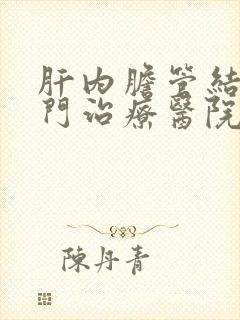 肝内膽管結
門治療醫院
陳丹青